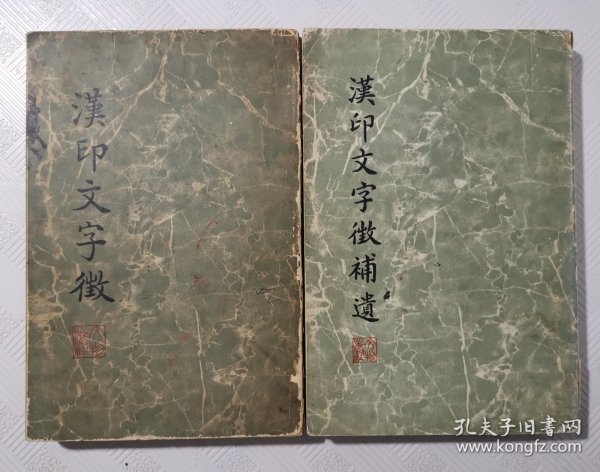 漢印文字徵
漢印文字徵補遺
孔夫子旧书网
www.kongfz.com